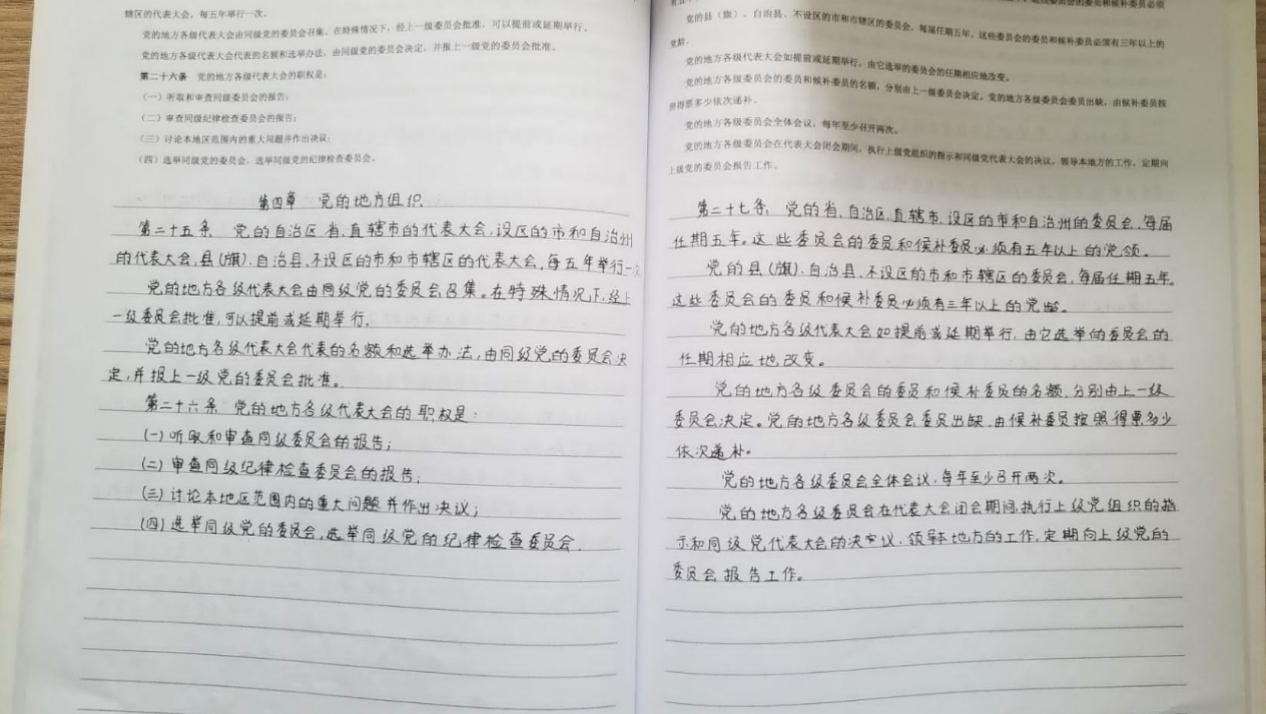 辖区的代表大会，每五年举行一次。
党的地方各级代表大会由同级党的委员会召集。在特殊情况下，经上一级委员会批准，可以提前或延期举行。
党的地方各级代表大会代表的名额和选举办法，由同级党的委员会决定，并报上一级党的委员会批准。
第二十六条 党的地方各级代表大会的职权是：
（一）听取和审查同级委员会的报告；
（二）审查同级纪律检查委员会的报告；
（三）讨论本地区范围内的重大问题并作出决议；
（四）选举同级党的委员会，选举同级党的纪律检查委员会。
第四章 党的地方组织
第二十五条 党的自治区省、直辖市的代表大会，设区的市和自治州
的代表大会，县（旗）、自治县、不设区的市和市辖区的代表大会，每五年举行一次
党的地方各级代表大会由同级党的委员会召集。在特殊情况下，经上
一级委员会批准，可以提前或延期举行。
党的地方各级代表大会代表的名额和选举办法，由同级党的委员会决
定，并报上一级党的委员会批准。
第二十六条 党的地方各级代表大会的职权是：
（一）听取和审查同级委员会的报告；
（二）审查同级纪律检查委员会的报告；
（三）讨论本地区范围内的重大问题并作出决议；
（四）选举同级党的委员会，选举同级党的纪律检查委员会．
委员会的委员和候补委员必须
党的县（旗）、自治县、不设区的市和市辖区的委员会，每届任期五年。这些委员会的委员和候补委员必须有三年以上的
党龄。
党的地方各级代表大会如提前或延期举行，由它选举的委员会的任期相应地改变。
党的地方各级委员会的委员和候补委员的名额，分别由上一级委员会决定。党的地方各级委员会委员出缺，由候补委员按
照得票多少依次递补。
党的地方各级委员会全体会议，每年至少召开两次。
党的地方各级委员会在代表大会闭会期间，执行上级党组织的指示和同级党代表大会的决议，领导本地方的工作，定期向
上级党的委员会报告工作。
第二十七条：党的省、自治区、直辖市、设区的市和自治州的委员会，每届
任期五年。这些委员会的委员和候补委员必须有五年以上的党领。
党的县（旗）、自治县、不设区的市和市辖区的委员会，每届任期五年。
这些委员会的委员和候补委员必须有三年以上的党龄。
党的地方各级代表大会如提前或延期举行，由它选举的委员会的
任期相应地改变。
党的地方各级委员会的委员和候补委员的名额，分别由上一级
委员会决定。党的地方各级委员会委员出缺，由候补委员按照得票多少
依次递补。
党的地方各级委员会全体会议，每年至少召开两次。
党的地方各级委员会在代表大会闭会期间，执行上级党组织的指
示和同级党代表大会的决议，领导地方的工作，定期向上级党的
委员会报告工作。